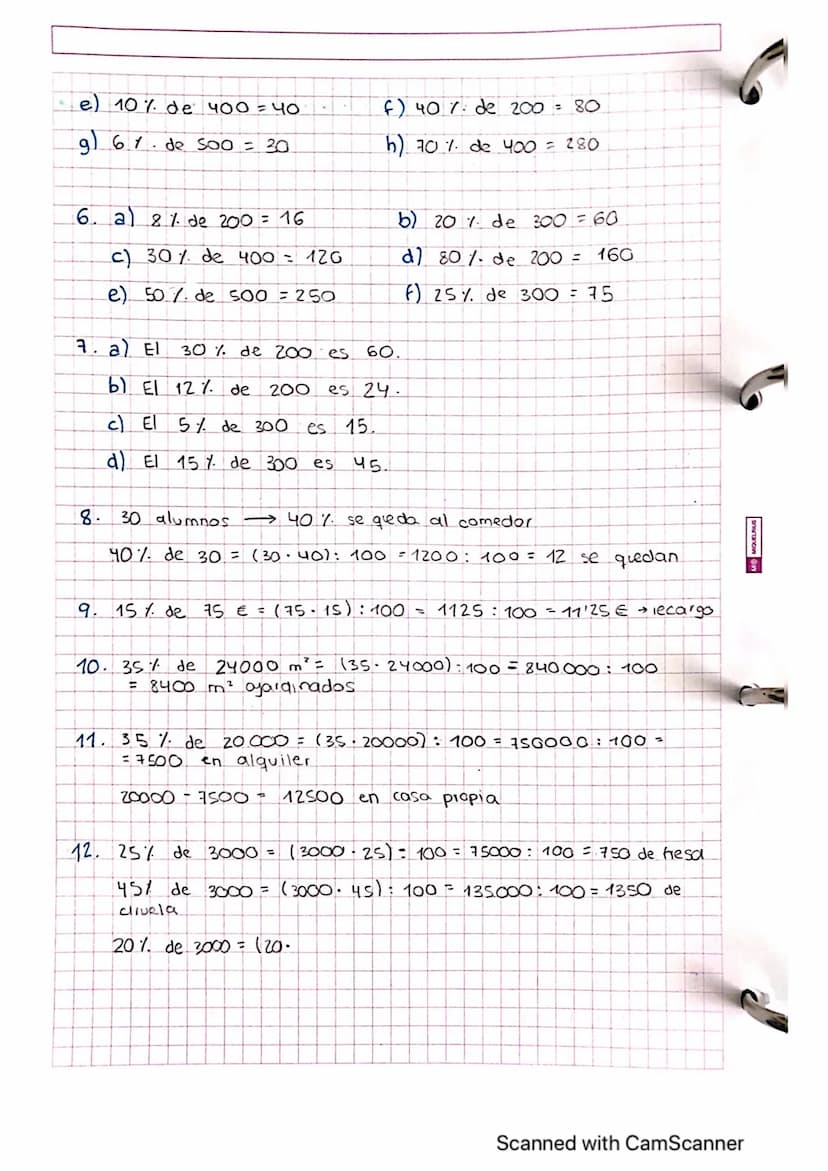 e) 10 % de 400 = 40 f) 40 % de 200 = 80
g) 6 % de 500 = 30 h) 70 % de 400 = 280
6. a) 8 % de 200 = 16 b) 20 % de 300 = 60
c) 30 % de 400 = 120 d) 80 % de 200 = 160
e) 50 % de 500 = 250 f) 25 % de 300 = 75
7. a) El 30 % de 200 es 60.
b) El 12 % de 200 es 24.
c) El 5 % de 300 es 15.
d) El 15 % de 300 es 45.
8. 30 alumnos → 40 % se queda al comedor
40 % de 30 = (30 · 40) : 100 = 1200 : 100 = 12 se quedan
9. 15 % de 75 € = (75 · 15) : 100 = 1125 : 100 = 11'25 € → recargo
10. 35 % de 24000 m² = (35 · 24000) : 100 = 840000 : 100
= 8400 m² ajardinados
11. 35 % de 20000 = (35 · 20000) : 100 = 750000 : 100 =
= 7500 en alquiler
20000 - 7500 = 12500 en casa propia
12. 25 % de 3000 = (3000 · 25) : 100 = 75000 : 100 = 750 de fresa
45 % de 3000 = (3000 · 45) : 100 = 135000 : 100 = 1350 de
ciruela
20 % de 3000 = (20 ·
MIQUELRIUS
Scanned with CamScanner